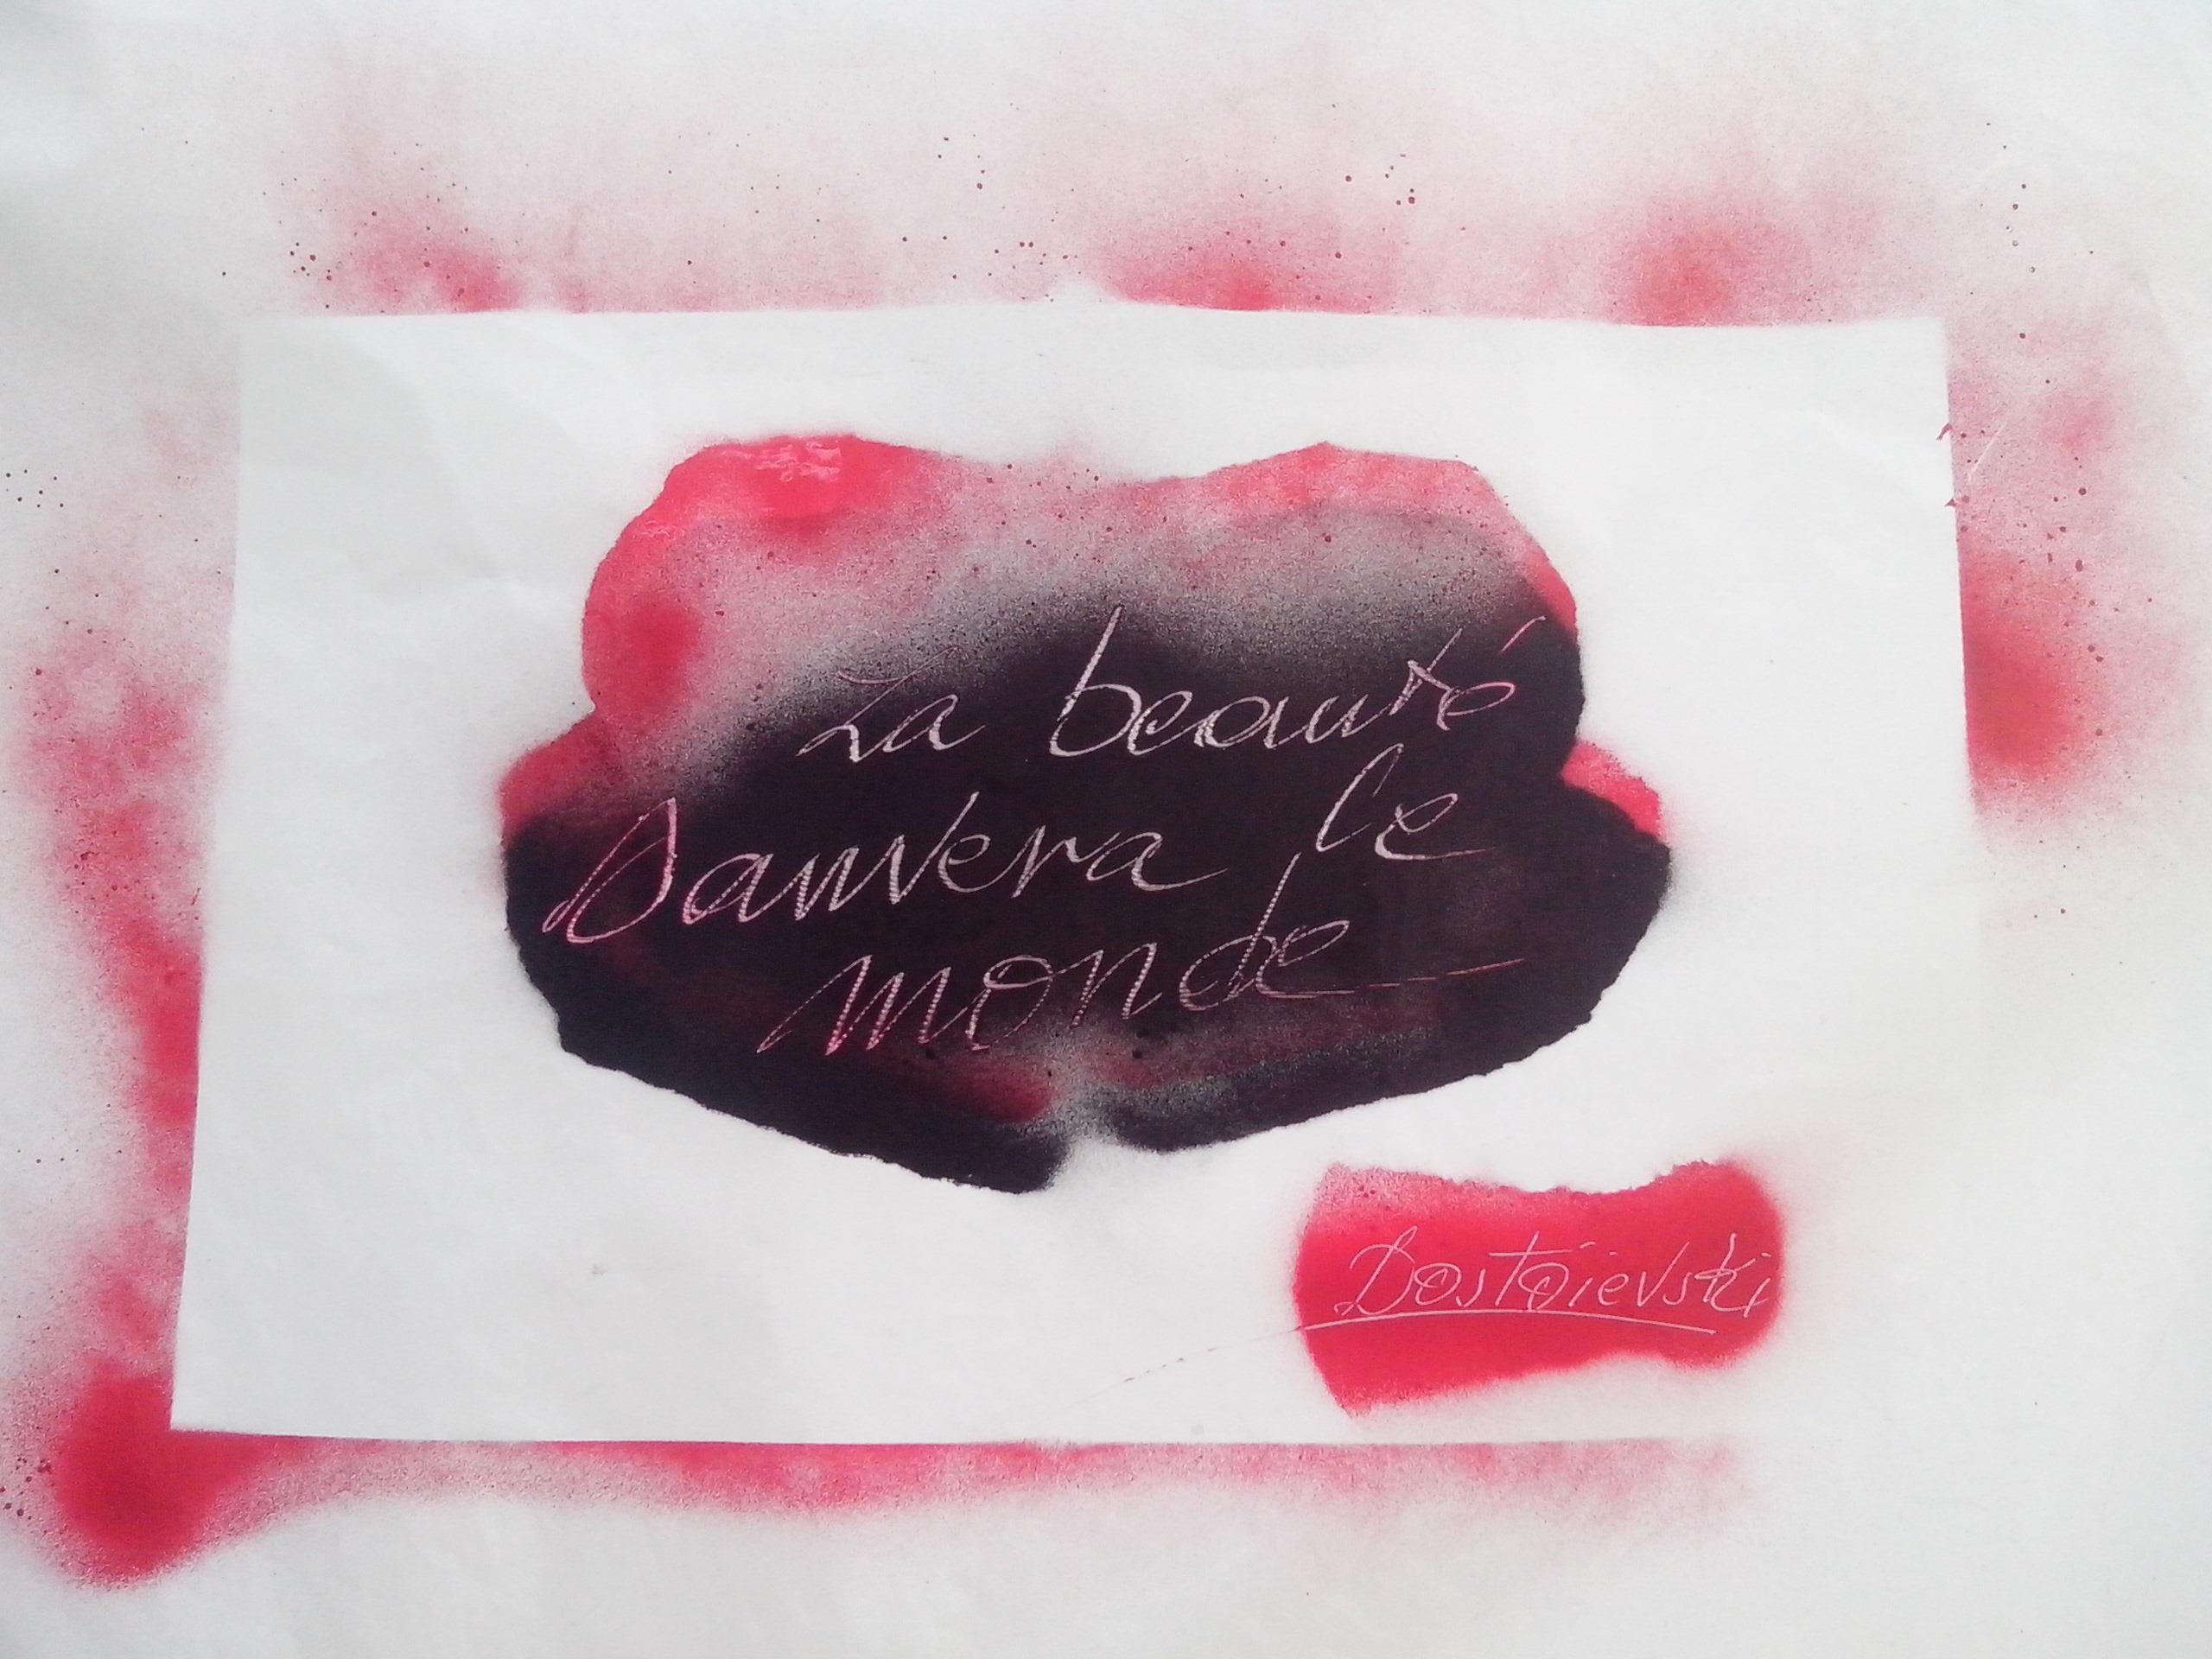 La beauté
Sauvera le
monde
Dostoïevski